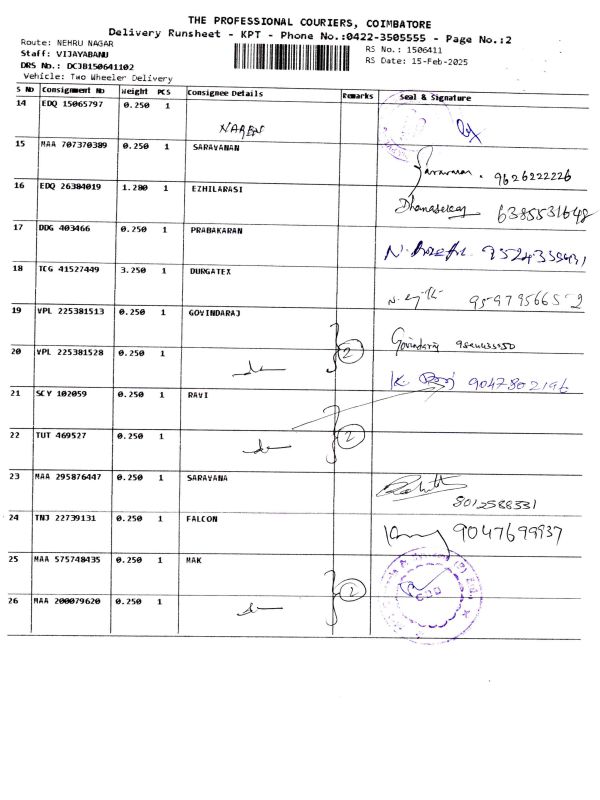 THE PROFESSIONAL COURIERS, COIMBATORE
Delivery Runsheet - KPT - Phone No.:0422-3505555 - Page No.:2
Route: NEHRU NAGAR
RS No.: 1506411
Staff: VIJAYABANU
RS Date: 15-Feb-2025
DRS No.: DCJB150641102
Vehicle: Two Wheeler Delivery
S No Consignment No Weight PCS Consignee Details Remarks Seal & Signature
14 EDQ 15065797 0.250 1
NAREN
15 MAA 707370389 0.250 1 SARAVANAN
Saravanan. 9626222226
16 EDQ 26384019 1.280 1 EZHILARASI
Dhanasekar 6385531648
17 DDG 403466 0.250 1 PRABAKARAN
18 TCG 41527449 3.250 1 DURGATEX
19 VPL 225381513 0.250 1 GOVINDARAJ
Govindaraj
20 VPL 225381528 0.250 1 2
K. 9047802196
21 SCY 102059 0.250 1 RAVI
22 TUT 469527 0.250 1 2
23 MAA 295876447 0.250 1 SARAVANA
8012588331
24 TNJ 22739131 0.250 1 FALCON
9047699937
25 MAA 575748435 0.250 1 MAK
2
26 MAA 200079620 0.250 1